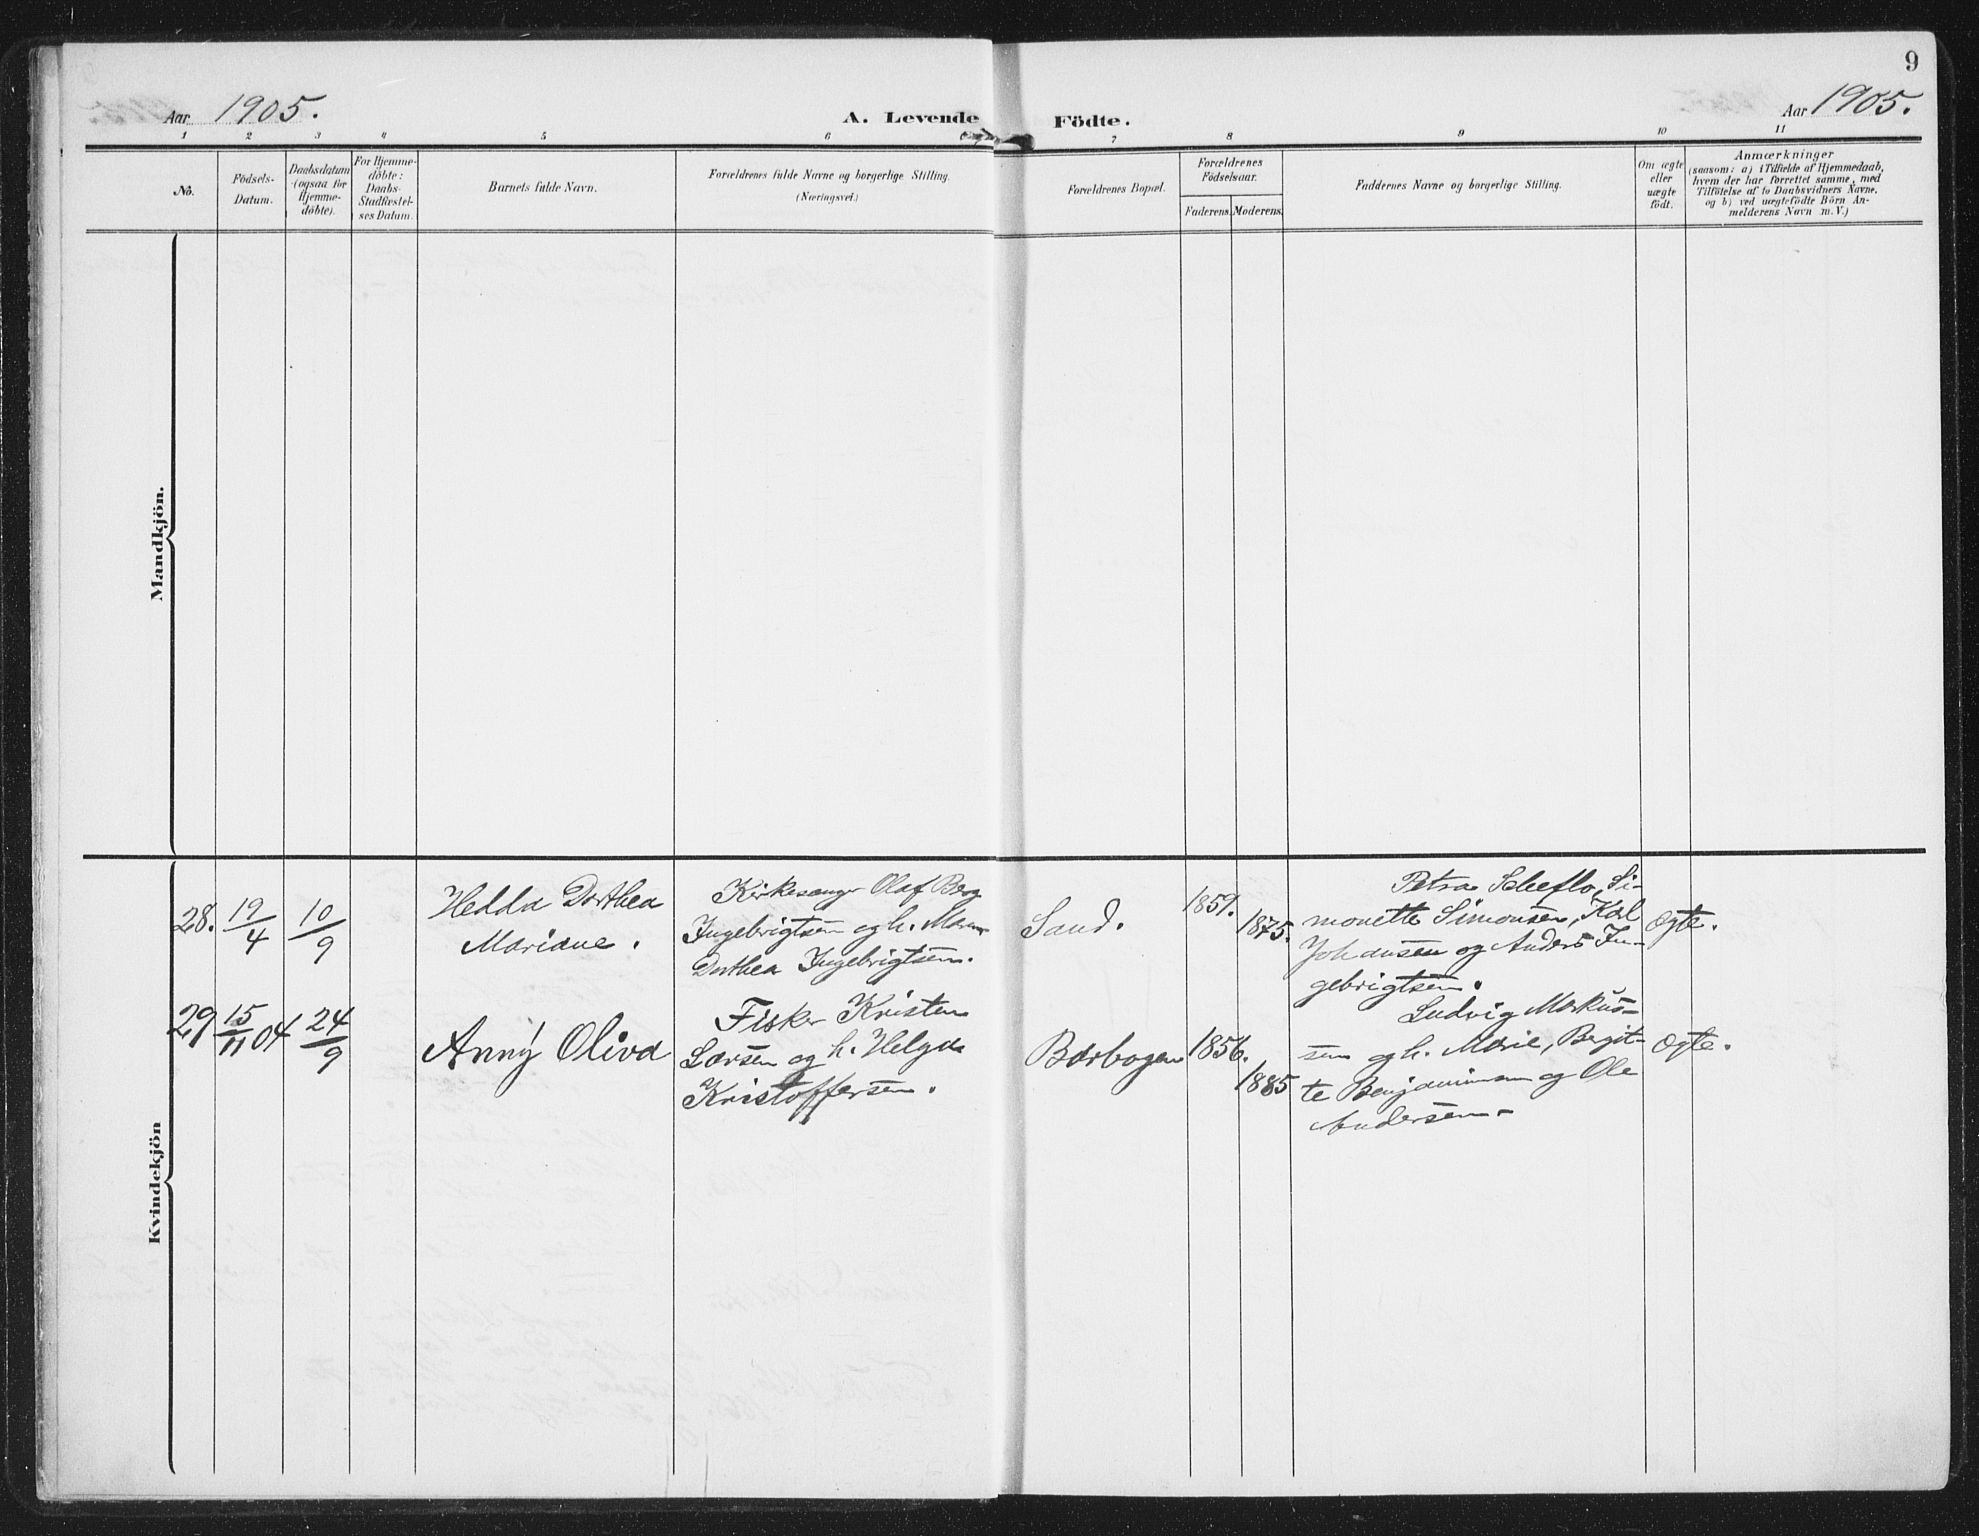 9
Aar 1905.
A. Levende Födte.
Aar 1905.
1 2 3 4 5 6 7 8 9 10 11
No.
Födsels-
Datum.
Daabsdatum
(ogsaa for
Hjemme-
döbte).
For Hjemme-
döbte:
Daabs-
Stadfæstel-
ses Datum.
Barnets fulde Navn.
Forældrenes fulde Navne og borgerlige Stilling.
(Næringsvei.)
Forældrenes Bopæl.
Forældrenes
Födselsaar.
Faderens. Moderens.
Faddernes Navne og borgerlige Stilling.
Om ægte
eller
uægte
födt.
Anmærkninger
(saasom: a) i Tilfælde af Hjemmedaab,
hvem der har forrettet samme, med
Tilföielse af to Daabsvidners Navne,
og b) ved uægtefödte Börn An-
melderens Navn m. V.)
Mandkjön.
Kvindekjön
28. 19/4 10/9
Hedda Dorthea
Mariane.
Kirkesanger Olaf Berg
Ingebrigtsen og h. Maren
Dorthea Ingebrigtsen.
Sand.
1859.
1875.
Petra Scheflo, Si-
monette Simonsen, Kal
Johansen og Anders In-
gebrigtsen.
Ægte.
29 15/11 04 24/9
Anny Oliva
Fisker Kristen
Larsen og h. Helga
Kristoffersen.
Barbogen
1856.
1885
Ludvig Markus-
sen og h. Marie, Bergit-
te Benjaminsen og Ole
Andersen.
Ægte.